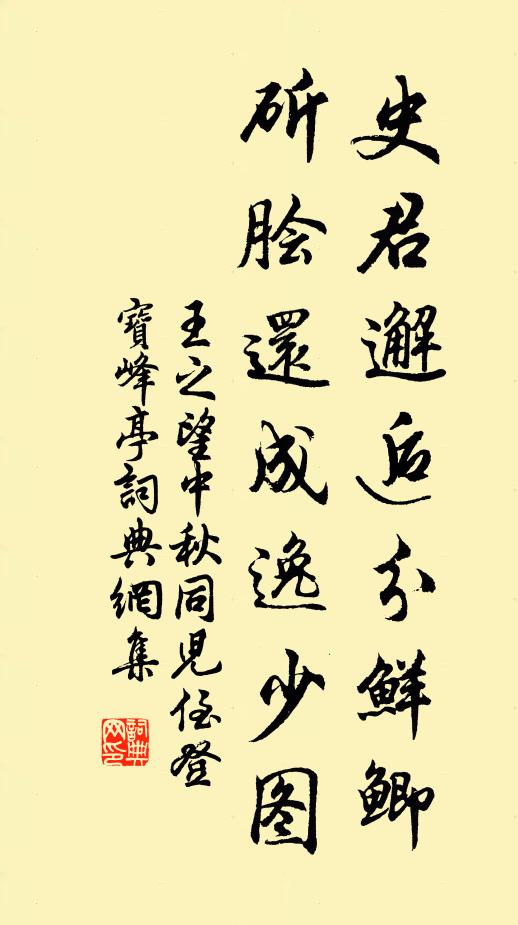 史君邂逅分鮮鯽
斫脍還成逸少图
王之望中秋同児侄登
寶峰亭詞典網集
詞典
网印